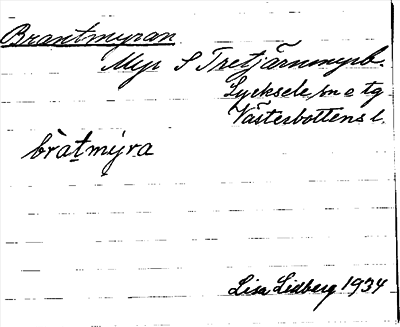 Brantmyran
Myr S Tretjärnmyrb.
Lycksele sn o tg
Västerbottens l.
bràt̠mýra
Lisa Lidberg 1934